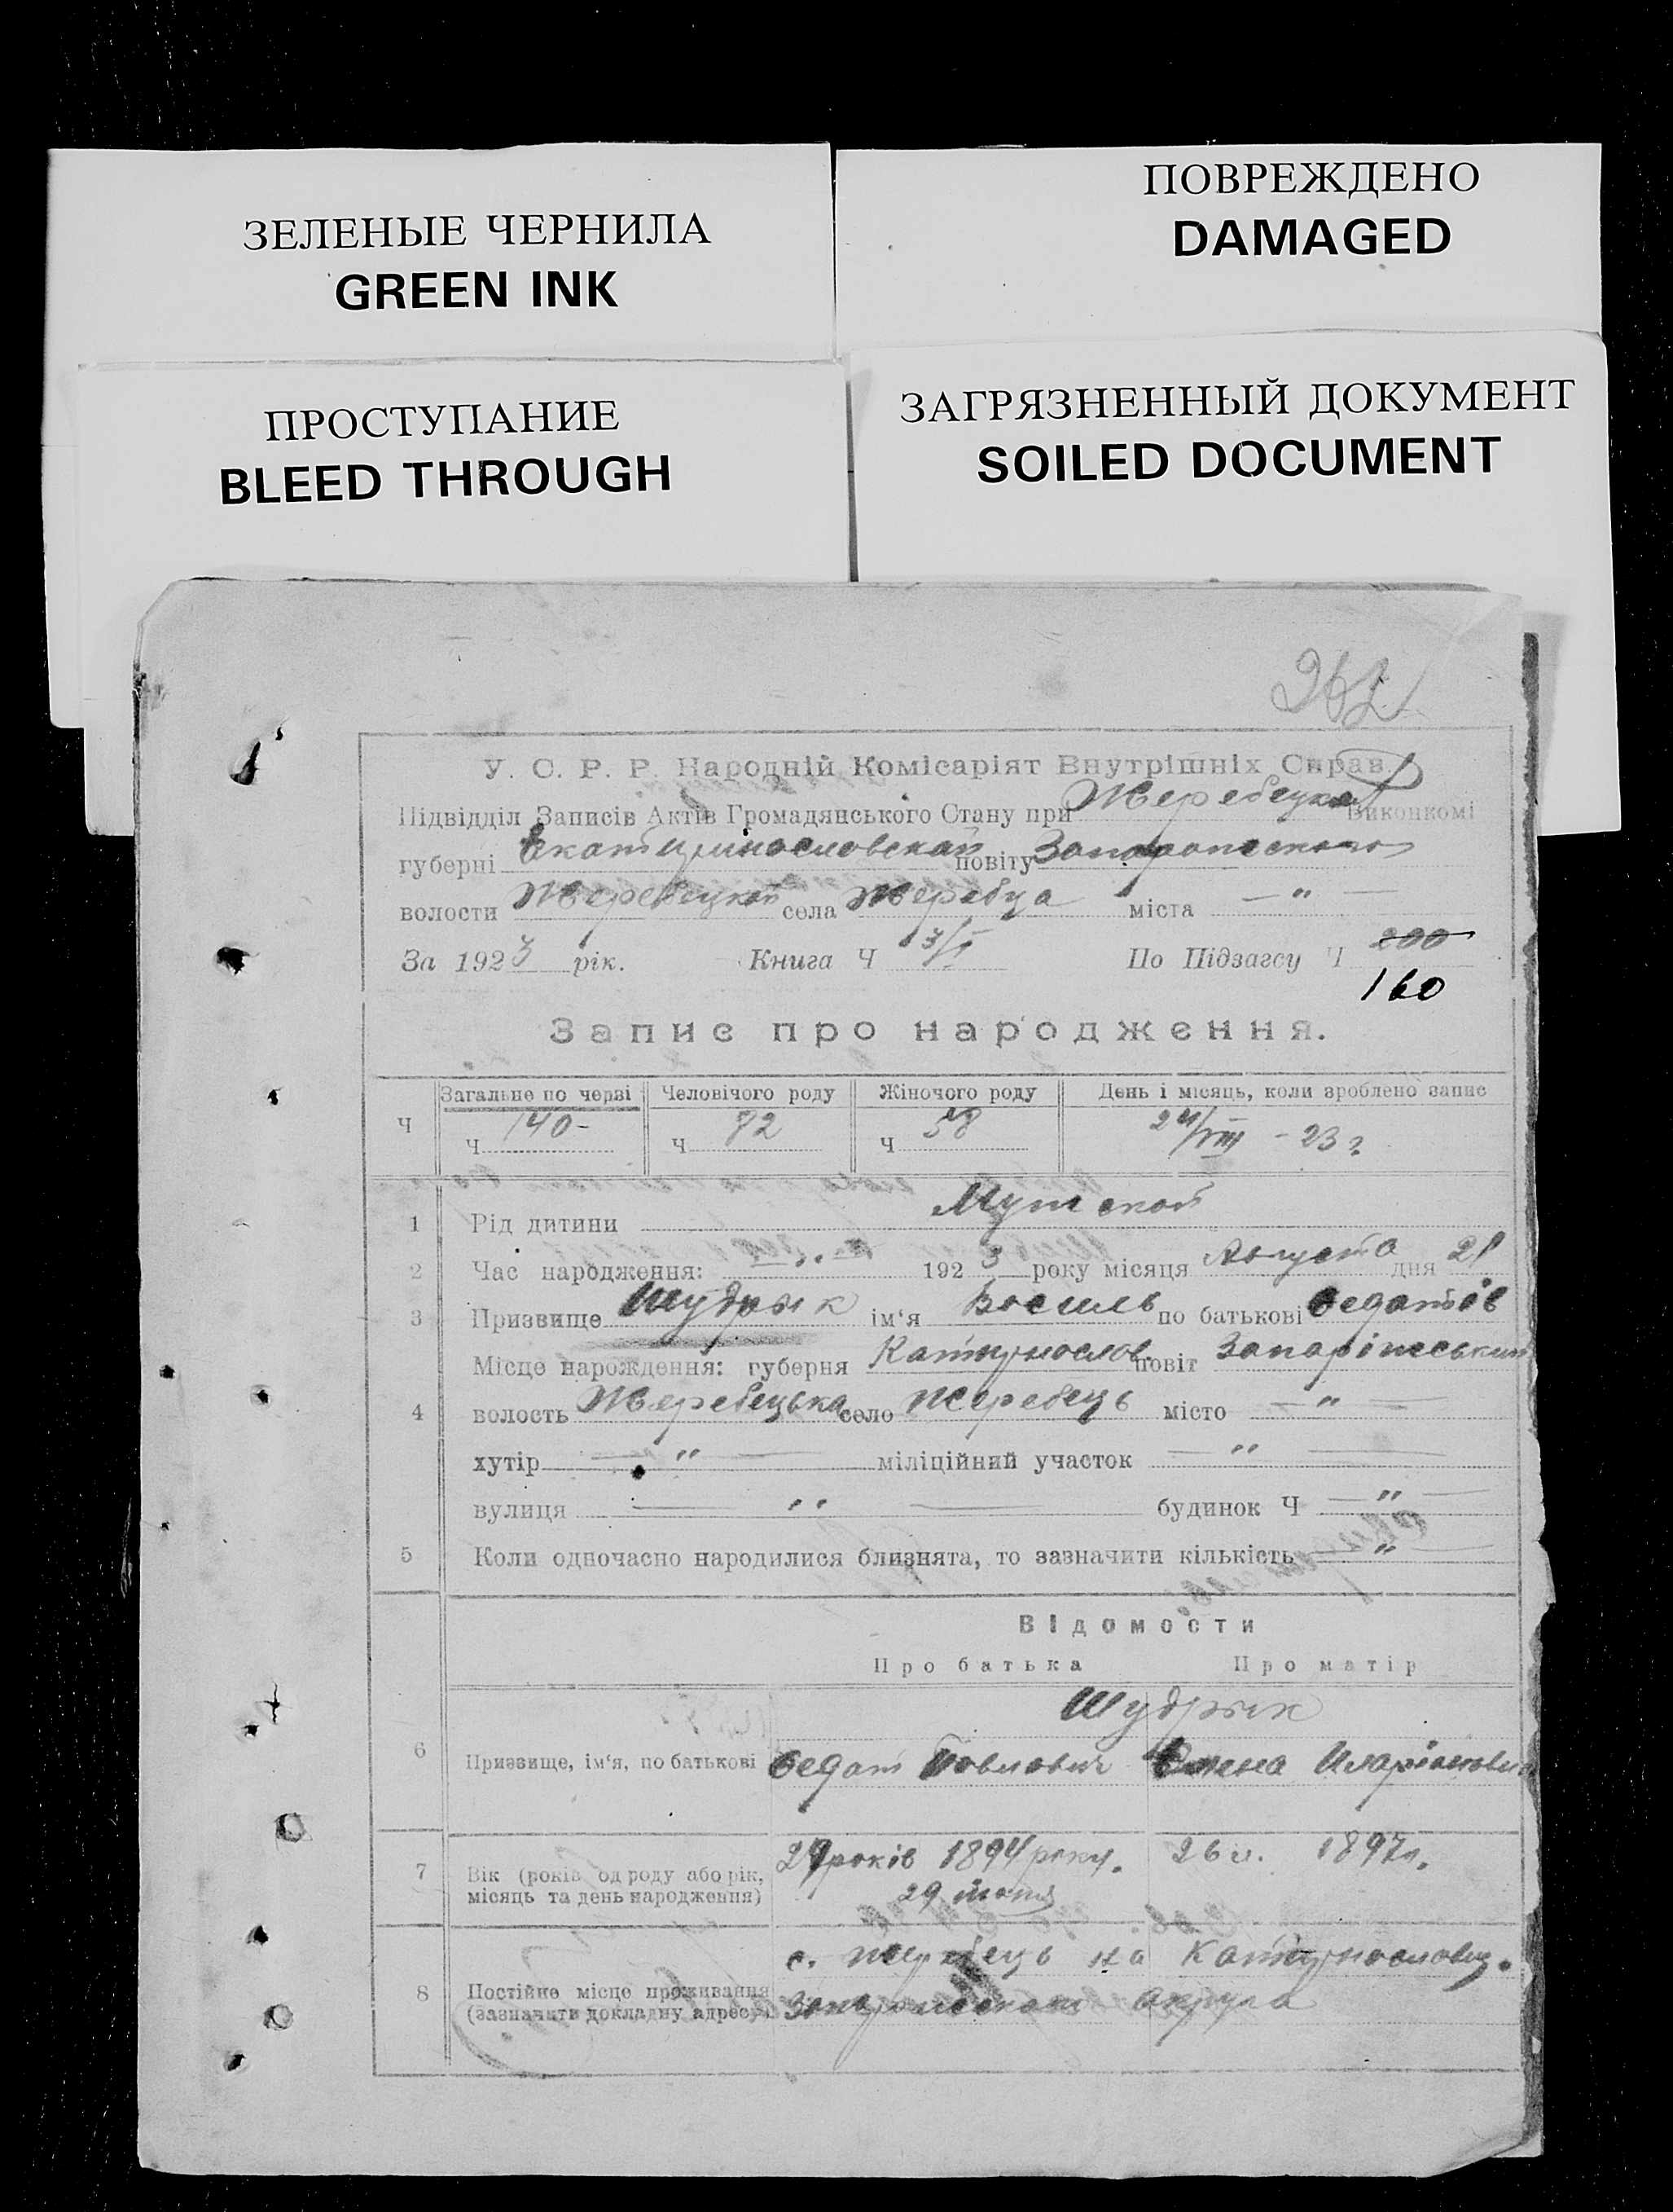 ЗЕЛЕНЫЕ ЧЕРНИЛА
GREEN INK
ПОВРЕЖДЕНО
DAMAGED
ПРОСТУПАНИЕ
BLEED THROUGH
ЗАГРЯЗНЕННЫЙ ДОКУМЕНТ
SOILED DOCUMENT
У. С. Р. Р. Народній Комісаріят Внутрішніх Справ.
Підвідділ Записів Актів Громадянського Стану при Жеребецком Виконкомі
губерні Екатеринославской повіту
волости Жеребецкой села Жеребца міста — " —
За 1923 рік. Книга Ч 3/I По Підзагсу Ч 200
160
Запис про народження.
Ч Загальне по черзі Человічого роду Жіночого роду День і місяць, коли зроблено запис
Ч 140- Ч 82 Ч 58 24/VIII - 23 г
1 Рід дитини
2 Час народження: 1923 року місяця Августа дня 21
3 Призвище Шудрык ім‘я Василь по батькові Федотів
Місце нарождення: губерня Катеринослов. повіт
4 волость Жеребецька село Жеребець місто — " —
хутір — " — міліційний участок — " —
вулиця — " — будинок Ч — " —
5 Коли одночасно народилися близнята, то зазначити кількість — " —
Відомости
Про батька Про матір
Шудрык
6 Призвище, ім‘я, по батькові Федот Павлович Олена
7 Вік (років од роду або рік, місяць та день народження) 29 років 1894 року. 26 л. 1897 г.
29
с. Жеребець на Катеринославщ.
8 Постійне місце проживання
(зазначити докладну адресу) округа